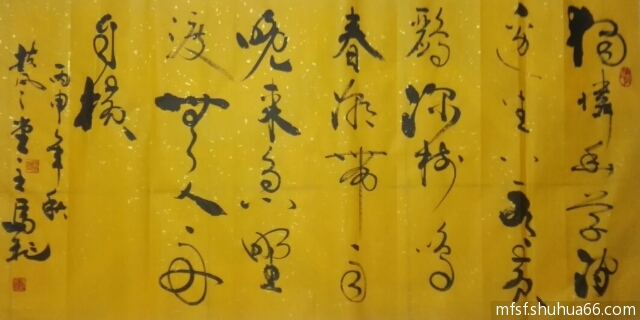 獨憐幽草澗
邊生上有黄
鸝深樹鳴
春潮帶雨
晚来急野
渡無人舟
自橫
丙申年秋
堂主馬
mfsf.shuhua66.com